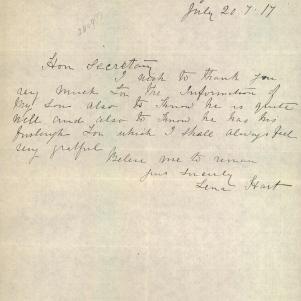 July 20-7-17
Hon Secretary
I wish to thank you
very much for the Information of
My Son also to Know he is quite
Well and also to Know he has his
furlough for which I shall always feel
very gratful
Beleve me to reman
yours Sincerely
Lena Hart